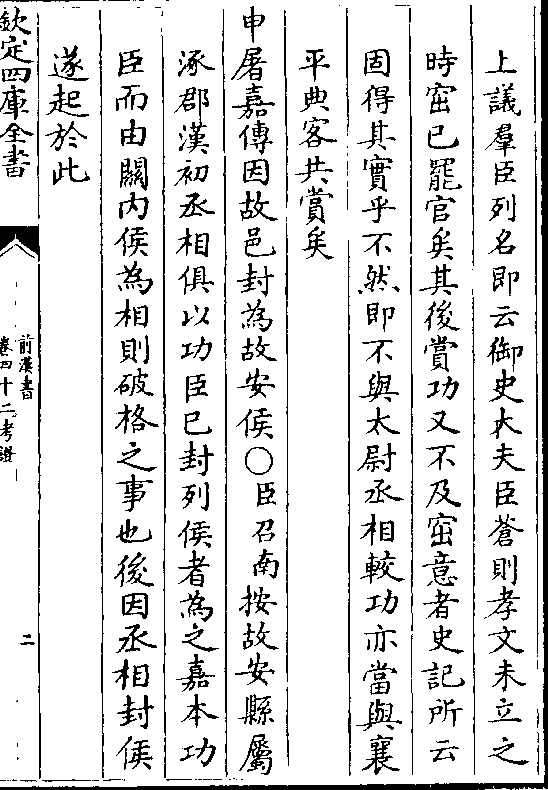 上議羣臣列名即云御史大夫臣蒼則孝文未立之
時窋已罷官矣其後賞功又不及窋意者史記所云
固得其實乎不然即不與太尉丞相較功亦當與襄
平典客共賞矣
申屠嘉傳因故邑封為故安侯〇臣召南按故安縣屬
涿郡漢初丞相俱以功臣已封列侯者為之嘉本功
臣而由關内侯為相則破格之事也後因丞相封侯
遂起於此
欽定四庫全書
前漢書
卷四十二考證
二